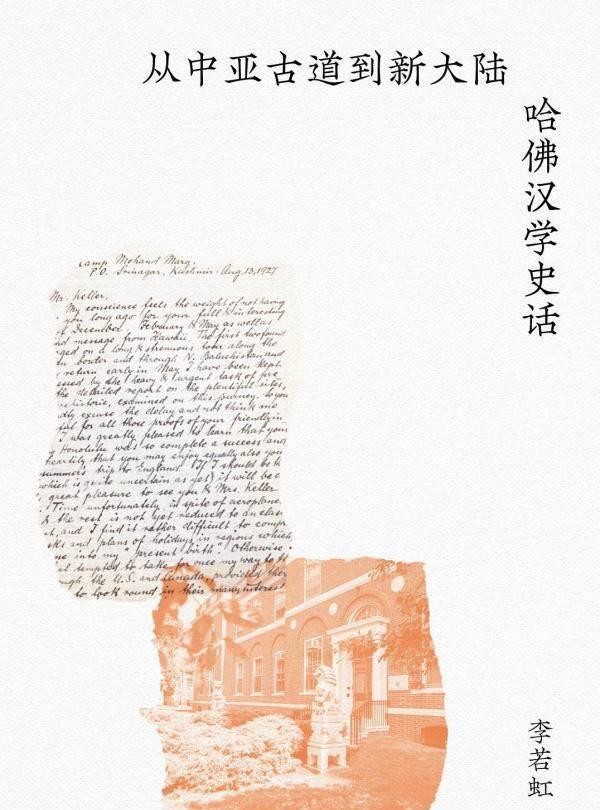 从中亚古道到新大陆
哈佛汉学史话
camp Mohand Marg,
P.O. Srinagar, Kashmir: Aug. 13, 1927
Mr. Keller,
My conscience feels the weight of not having
you long ago for your full & interesting
of December, February & May as well as
nd message from Hawaii. The first two found
ged on a long & strenuous tour along the
n border and through N. Baluchistan and
return early in May I have been kept
essed by the heavy & urgent task of pre
the detailed report on the plentiful sites,
rehistoric, examined on this journey. So you
dly excuse the delay and not think me
ful for all those proofs of your friendly in
I was greatly pleased to learn that your
Honolulu was so complete a success and
heartily that you may enjoy equally also your
summer's trip to England. If I should be
which is quite uncertain as yet) it will be a
great pleasure to see you & Mrs. Keller
Time unfortunately, in spite of aeroplane
& the rest is not yet reduced to an elas
t, and I find it rather difficult to compr
sks and plans of holidays in regions which
me into my "present birth". Otherwise
el tempted to take for once my way to
ough the U.S. and Canada, provided ther
to look round in their many interest
李若虹